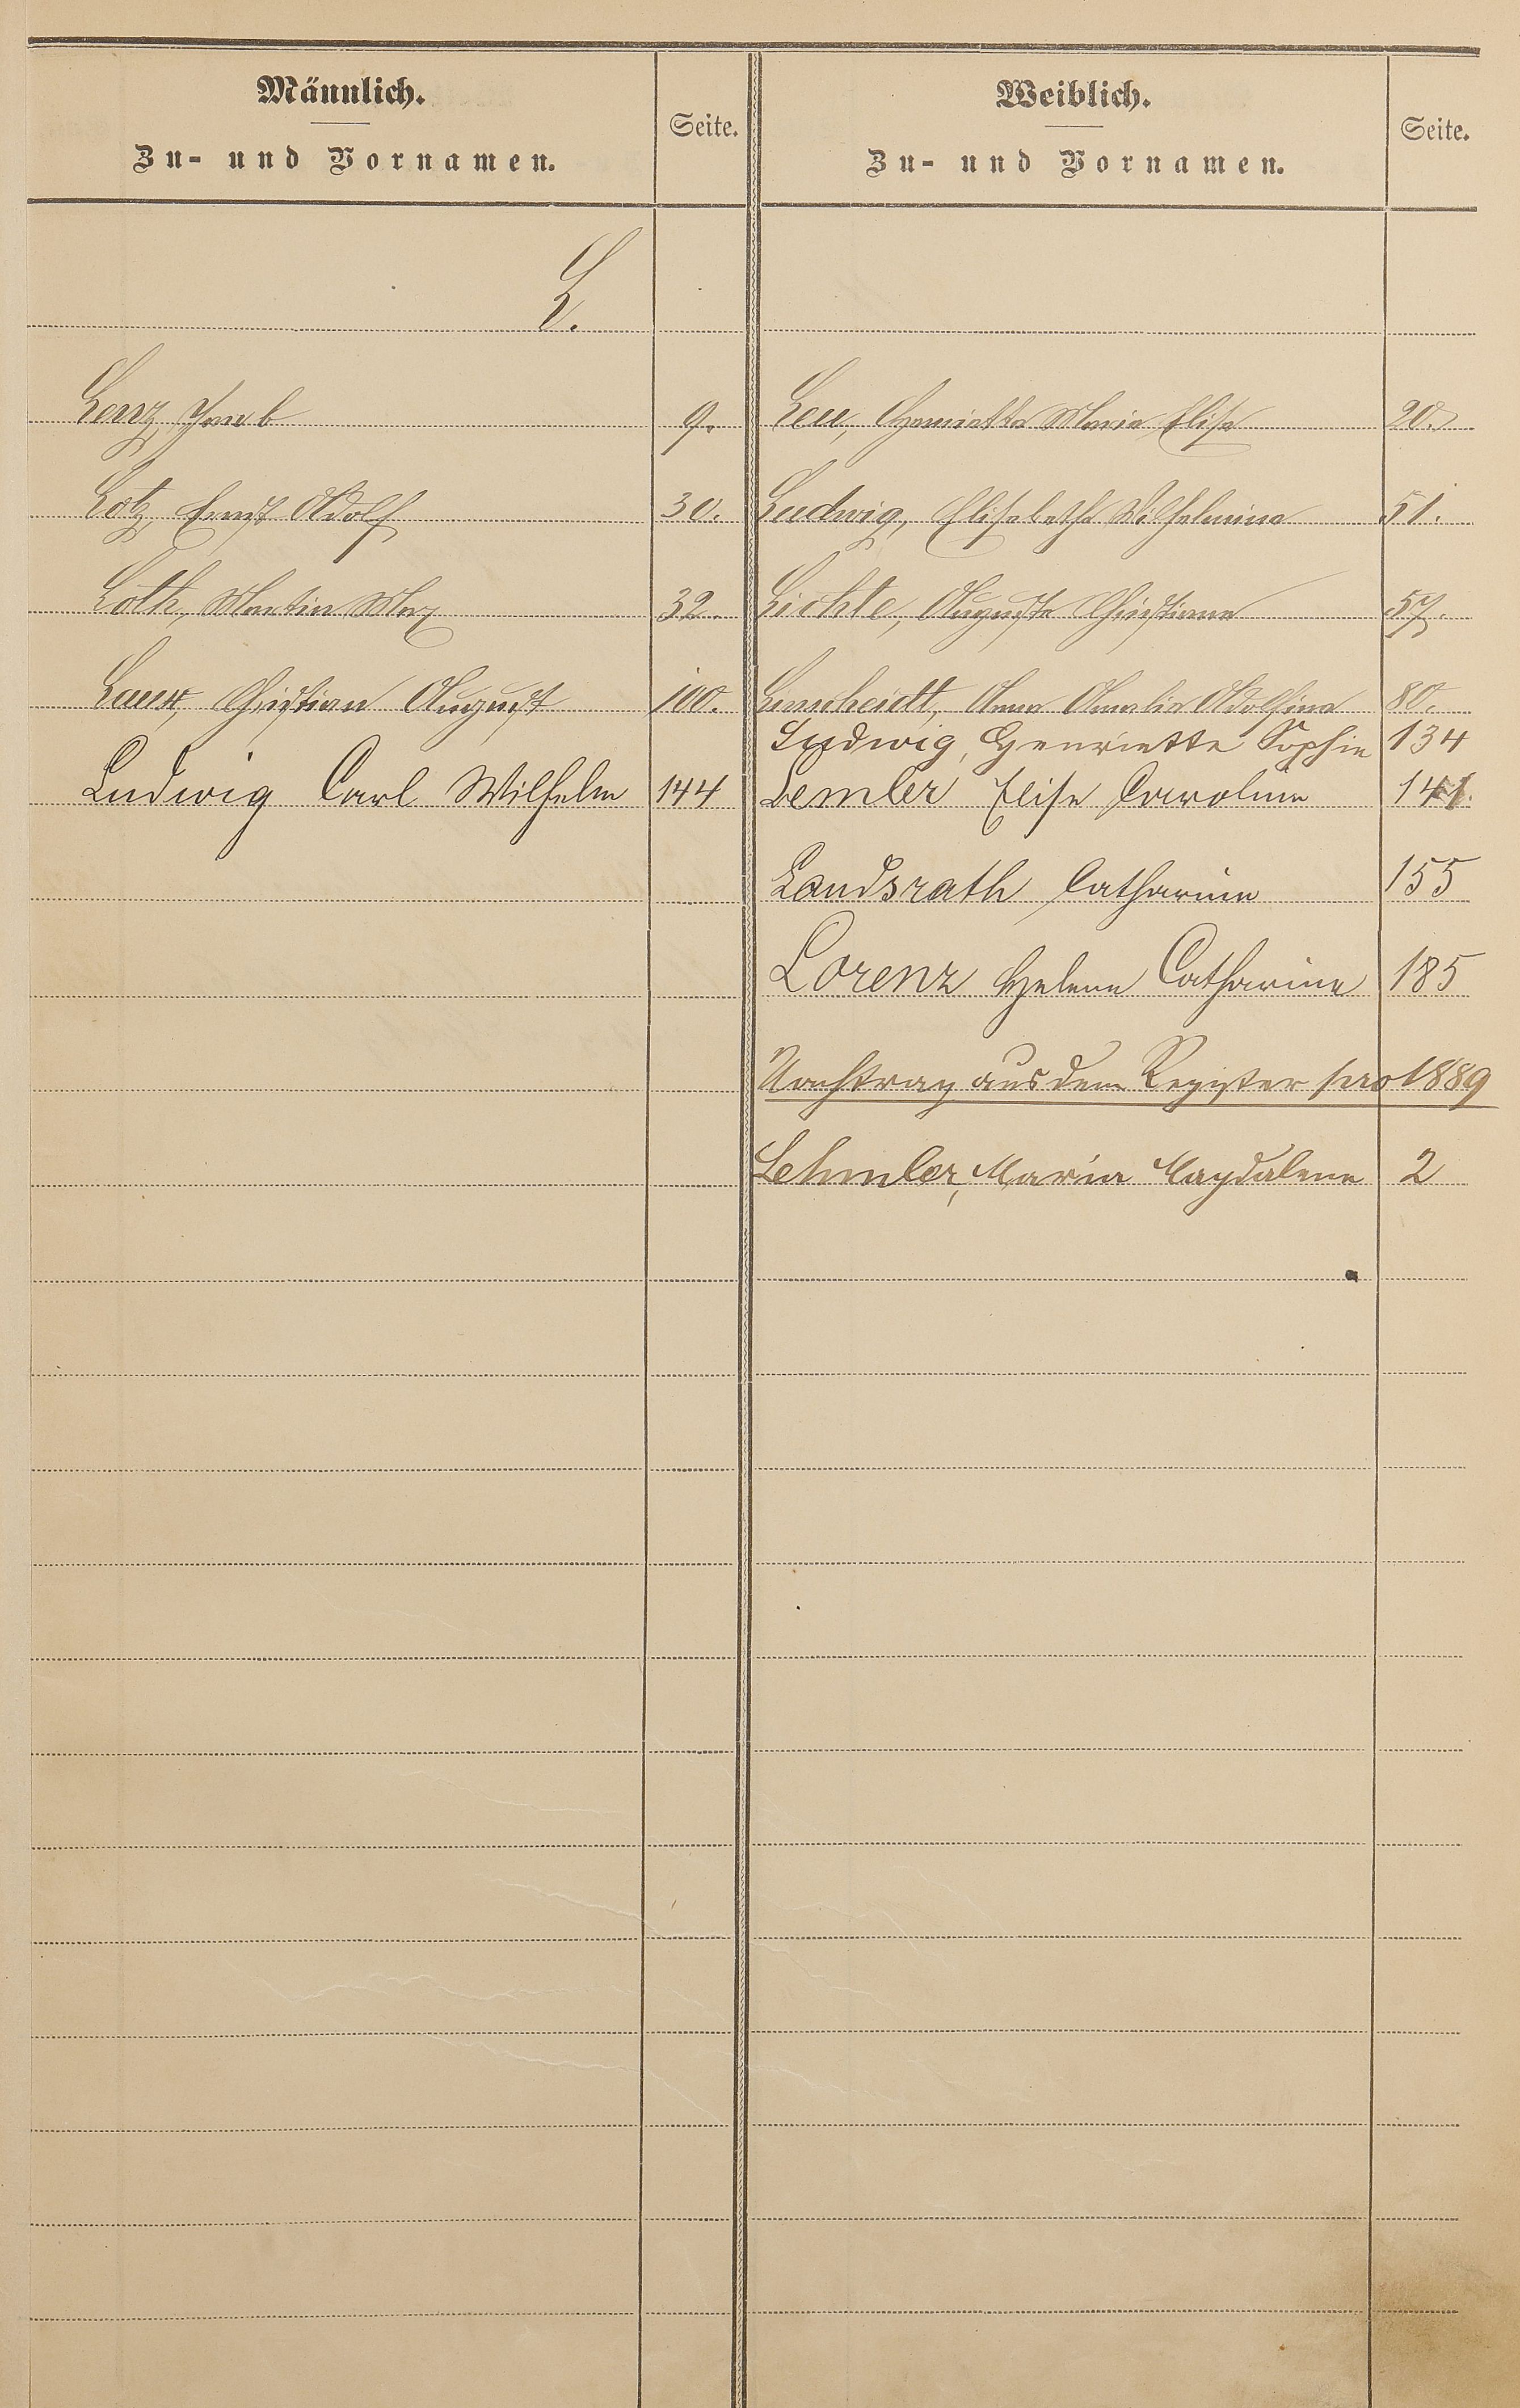 Männlich.
Zu- und Vornamen.
Seite.
L.
Lenz, Jacob 9.
Lotz, Ernst Adolf 30.
Loth, Martin Max 32.
Laux, Christian August 100.
Ludwig Carl Wilhelm 144
Weiblich.
Zu- und Vornamen.
Seite.
Leu, Henriette Marie Elise 20.
Ludwig, Elisabethe Wilhelmine 51.
Lichte, Auguste Christiane 57.
Linscheidt, Anna Amalie Adolfine 80.
Ludwig, Henriette Sophie 134
Lemler Elise Caroline 141.
Landsrath Catharine 155
Lorenz Helene Catharine 185
Nachtrag aus dem Register pro 1889
Lehmler, Maria Magdalene 2